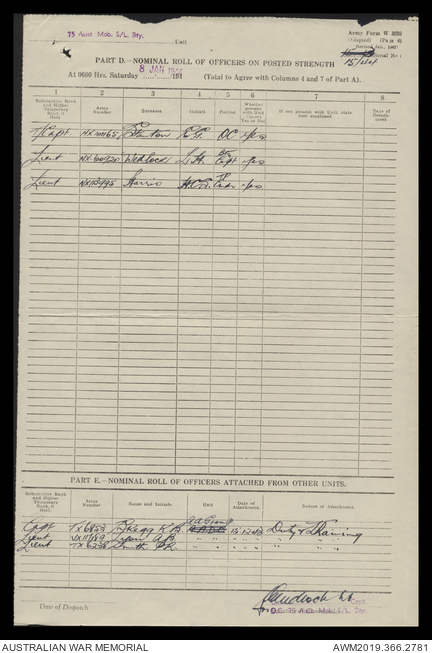 75 Aust Mob. S/L. Bty.
Unit
Army Form W 3008
(Adapted) (Page 4)
Revised Jan., 1942
Serial No:
15/1/44
PART D.—NOMINAL ROLL OF OFFICERS ON POSTED STRENGTH
At 0600 Hrs. Saturday 8 JAN 1944 /194 (Total to Agree with Columns 4 and 7 of Part A).
1 2 3 4 5 6 7 8
Substantive Rank and Higher Temporary Rank if Held
Army Number
Surname
Initials
Posted
Whether present with Unit (insert Yes or No)
If not present with Unit, state how employed
Date of
T/Capt. Stanton E.G. OC yes
Lieut NX Wedlock L.H. Bty Capt yes
Lieut Harris Tp Comdr yes
PART E.—NOMINAL ROLL OF OFFICERS ATTACHED FROM OTHER UNITS.
Substantive Rank and Higher Temporary Rank if Held.
Army Number.
Name and Initials.
Unit
Date of Attachment.
Nature of Attachment.
Capt TX6853 K B AA Group 15.12.43 Duty & Training
Lieut VX111159 Lyon A.B. " " " "
Lieut TX6258 Smith P.R. " " " "
Lieut
Capt.
O.C. 75 Aust. Mob. S/L. Bty.
Date of Despatch
AUSTRALIAN WAR MEMORIAL
AWM2019.366.2781